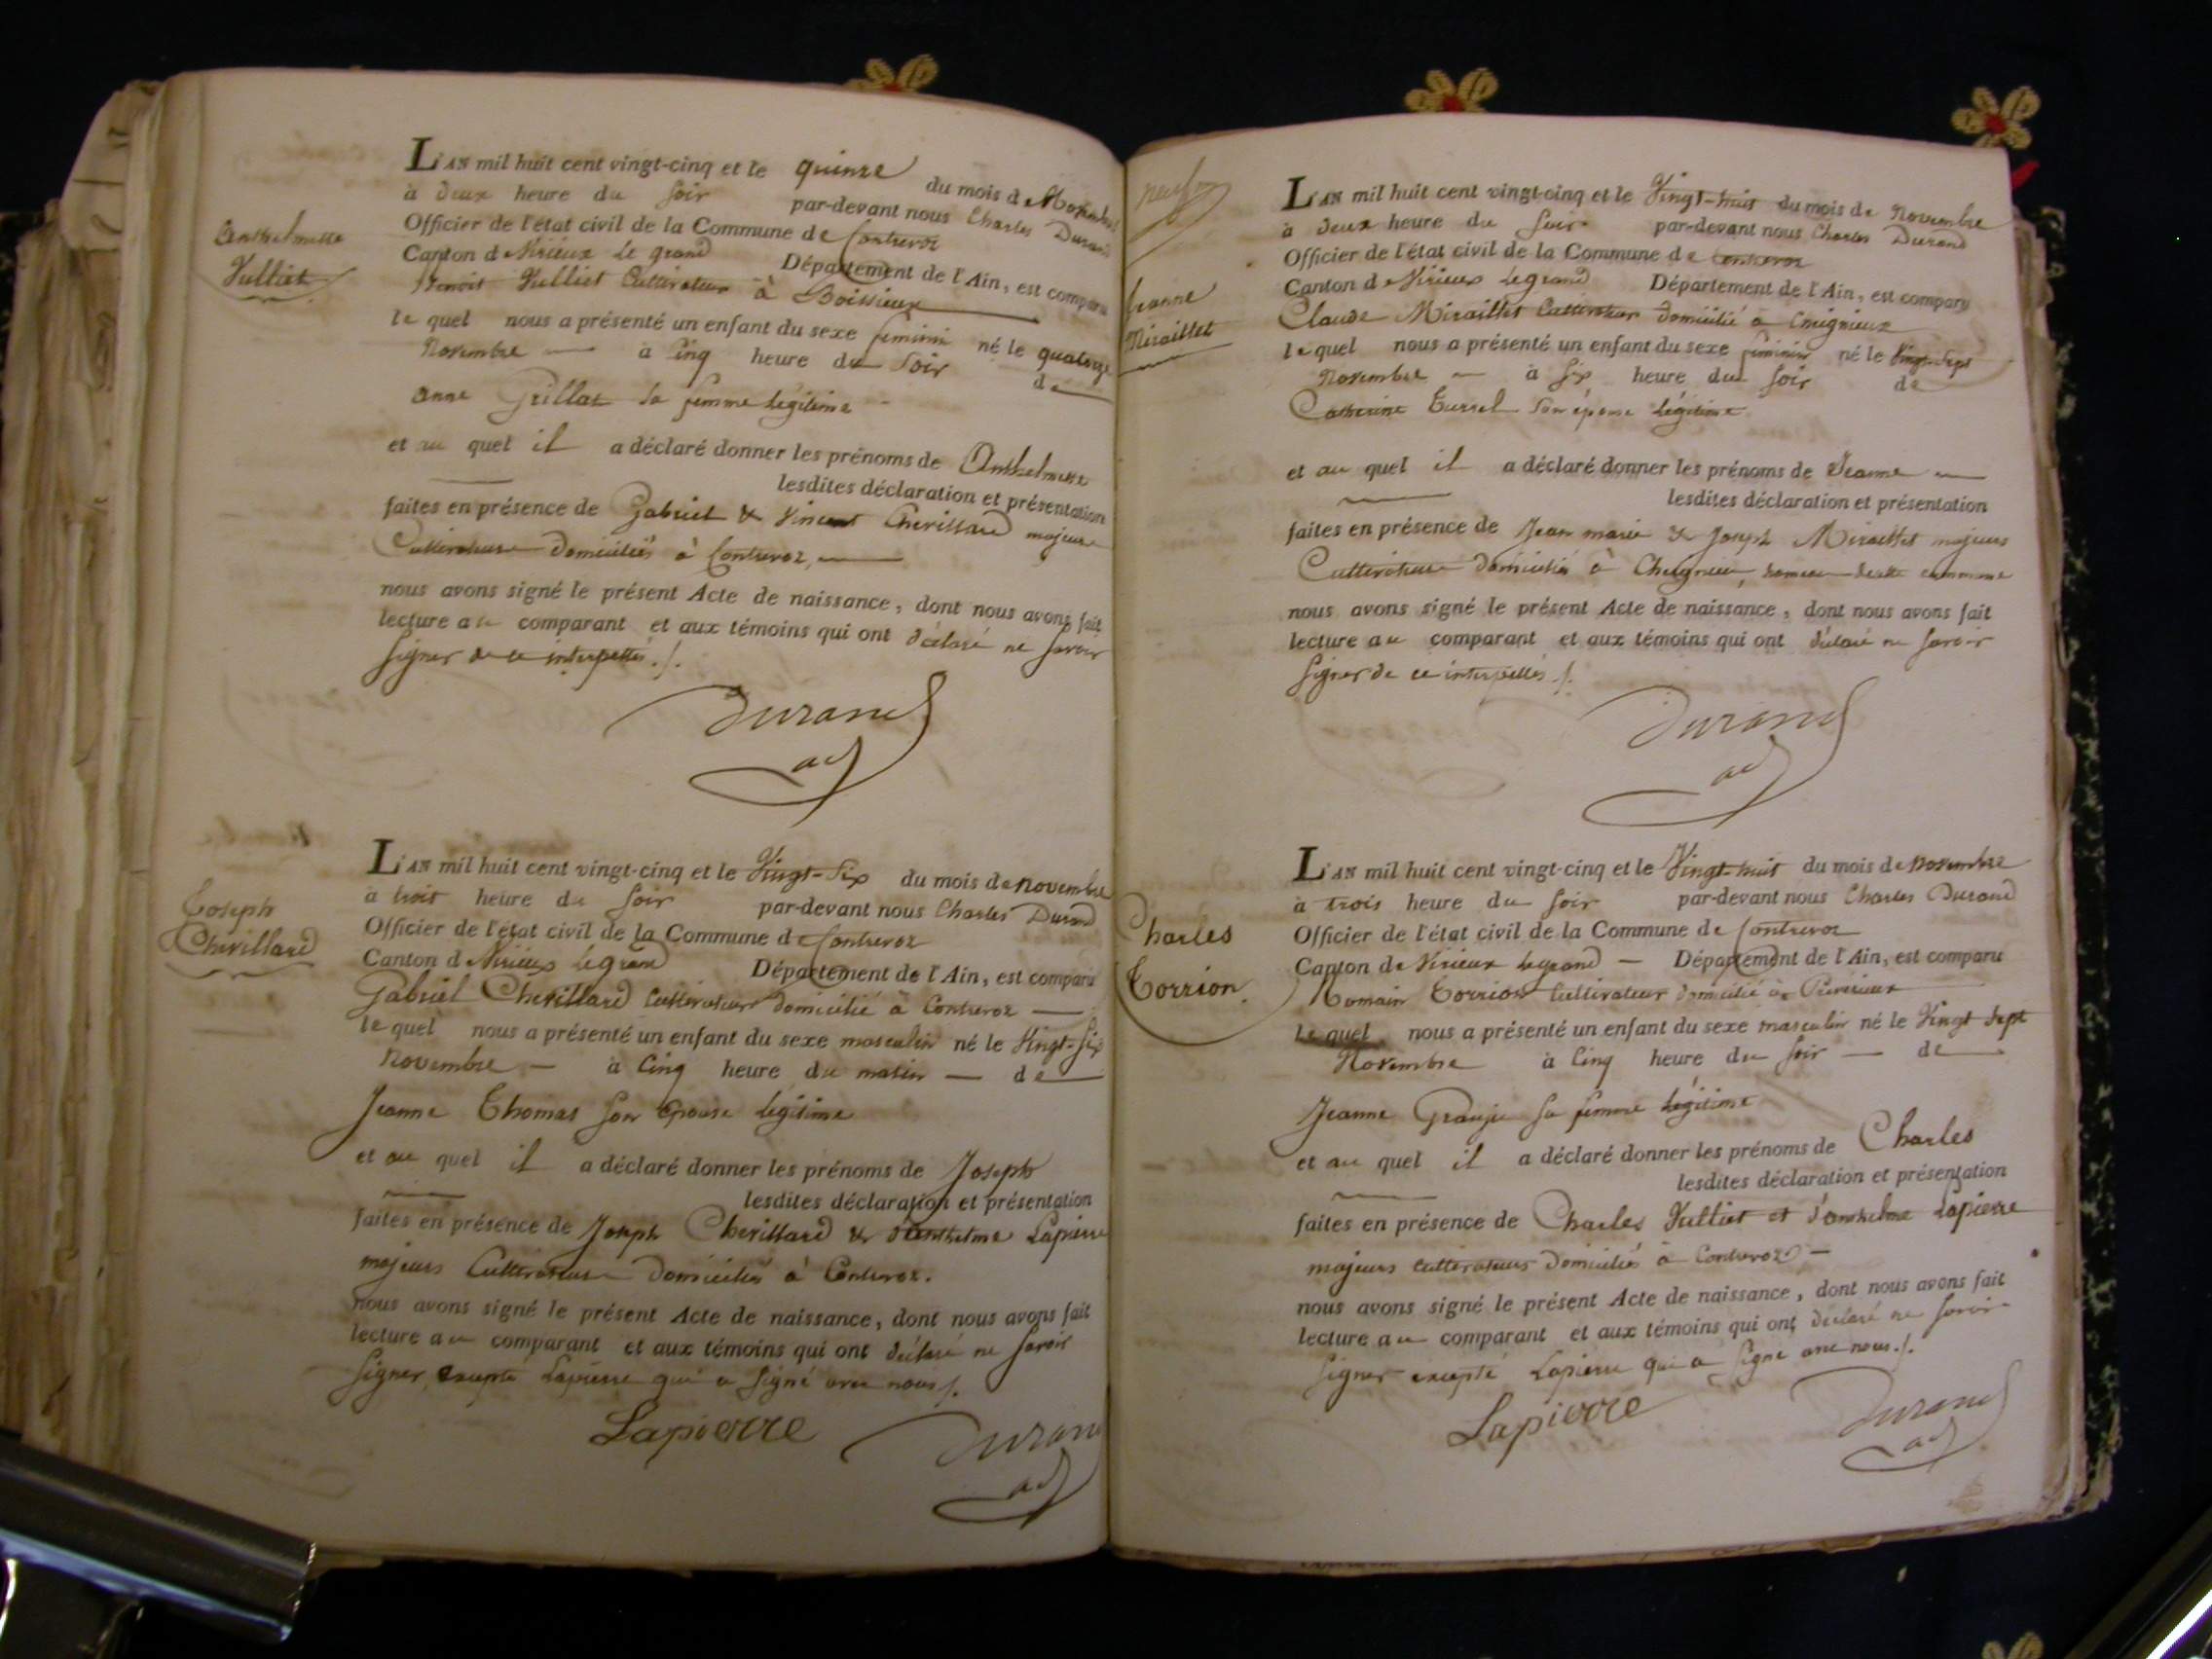 Anthelmette
Julliet
L'AN mil huit cent vingt-cinq et le quinze du mois de Novembre
à deux heure du soir par-devant nous Charles Durand
Officier de l'état civil de la Commune de Contrevoz
Canton de Virieux le grand Département de l'Ain, est comparu
Benoit Julliet Cultivateur à Boissieux
le quel nous a présenté un enfant du sexe féminin né le quatorze
Novembre à cinq heure du soir de
anne Grillat sa femme légitime
et au quel il a déclaré donner les prénoms de Anthelmette
lesdites déclaration et présentation
faites en présence de Gabriel & Vincent Chevillard majeurs
Cultivateurs domiciliés à Contrevoz,
nous avons signé le présent Acte de naissance, dont nous avons fait
lecture au comparant et aux témoins qui ont déclaré ne savoir
signer de ce interpellés ./.
Durand
adj
Joseph
Chevillard
L'AN mil huit cent vingt-cinq et le Vingt-six du mois de novembre
à trois heure du soir par-devant nous Charles Durand
Officier de l'état civil de la Commune de Contrevoz
Canton de Virieux le grand Département de l'Ain, est comparu
Gabriel Chevillard Cultivateur domicilié à Contrevoz
le quel nous a présenté un enfant du sexe masculin né le Vingt-six
novembre à cinq heure du matin de
Jeanne Thomas son épouse légitime
et au quel il a déclaré donner les prénoms de Joseph
lesdites déclaration et présentation
faites en présence de Joseph Chevillard & d'anthelme Lapierre
majeurs Cultivateurs domiciliés à Contrevoz.
nous avons signé le présent Acte de naissance, dont nous avons fait
lecture au comparant et aux témoins qui ont déclaré ne savoir
signer, excepté Lapierre qui a signé avec nous ./.
Lapierre Durand
adj
Jeanne
Miraillet
L'AN mil huit cent vingt-cinq et le Vingt-huit du mois de novembre
à deux heure du soir par-devant nous Charles Durand
Officier de l'état civil de la Commune de Contrevoz
Canton de Virieux le grand Département de l'Ain, est comparu
Claude Miraillet Cultivateur domicilié à Cheignieux
le quel nous a présenté un enfant du sexe féminin né le Vingt-sept
Novembre à six heure du soir de
Catherine Turrel son épouse légitime
et au quel il a déclaré donner les prénoms de Jeanne
lesdites déclaration et présentation
faites en présence de Jean marie & Joseph Miraillet majeurs
Cultivateurs domiciliés à Cheignieu, hameau de cette commune
nous avons signé le présent Acte de naissance, dont nous avons fait
lecture au comparant et aux témoins qui ont déclaré ne savoir
signer de ce interpellés ./.
Durand
adj
Charles
Torrion
L'AN mil huit cent vingt-cinq et le Vingt-huit du mois de novembre
à trois heure du soir par-devant nous Charles Durand
Officier de l'état civil de la Commune de Contrevoz
Canton de Virieux le grand Département de l'Ain, est comparu
Romain Torrion Cultivateur domicilié à
le quel nous a présenté un enfant du sexe masculin né le Vingt sept
Novembre à cinq heure du soir de
Jeanne sa femme légitime
et au quel il a déclaré donner les prénoms de Charles
lesdites déclaration et présentation
faites en présence de Charles Julliet et d'anthelme Lapierre
majeurs cultivateurs domiciliés à Contrevoz
nous avons signé le présent Acte de naissance, dont nous avons fait
lecture au comparant et aux témoins qui ont déclaré ne savoir
signer excepté Lapierre qui a signé avec nous ./.
Lapierre Durand
adj